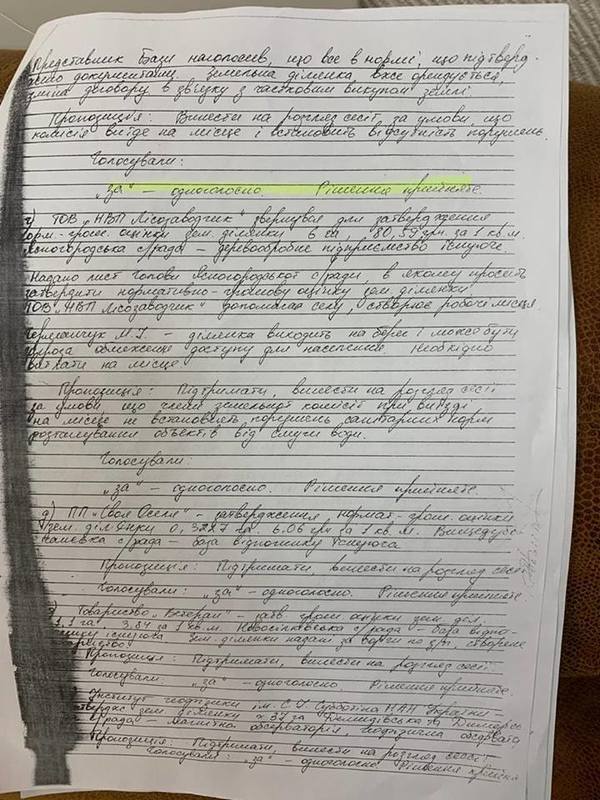 Представник бази наголосив, що все в нормі, що підтверд-
жено документами. Земельна ділянка, вже орендується,
зміна договору в звязку з частковим викупом землі.
Пропозиція: Винести на розгляд сесії, за умови, що
комісія виїде на місце і встановить відсутність порушень.
Голосували:
„за" – одноголосно. Рішення прийняте.
ТОВ „НВП Лісозаводчик" звернувся для затвердження
норм-грош. оцінки зем. ділянки 6 га, 80,59 грн. за 1 кв.м.
Ясногородська с/рада – деревообробне підприємство існуюче.
Надано лист голови Ясногородської с/ради, в якому просить
затвердити нормативно-грошову оцінку зем. ділянки
ТОВ „НВП Лісозаводчик" допомагає селу, створює робочі місця
М.І. – ділянка виходить на берег і може бути
загроза обмеження доступу для населення. Необхідно
виїхати на місце.
Пропозиція: Підтримати, винести на розгляд сесії
за умови, що члени земельної комісії при виїзді
на місце не встановлять порушень санітарних норм
розташування объектів від смуги води.
Голосували:
„за" – одноголосно. Рішення прийняте.
д) ПП „Своя Оселя" – затвердження нормат-грош. оцінки
зем. ділянки 0,3227 га. 6.06 грн за 1 кв.м.
с/рада – база відпочинку існуюча.
Пропозиція: Підтримати, винести на розгляд сесії
Голосували: „за" – одноголосно. Рішення прийняте
Товариство „Ветеран" – затв. грош. оцінки зем. діл.
1,1 га 3.84 за 1 кв.м. Новосілківська с/рада – база відпо-
чинку існуюча. Зем. ділянки надані
Пропозиція: Підтримати, винести на розгляд сесії
Голосували: „за" – одноголосно Рішення прийняте.
Інститут геофізики ім. С.І. Субботіна НАН України
зем. ділянку Демидівська
с/рада – магнітна обсерваторія, геофізична обсерват.
Пропозиція: Підтримати, винести на розгляд сесії
Голосували: „за" – одноголосно Рішення прийня